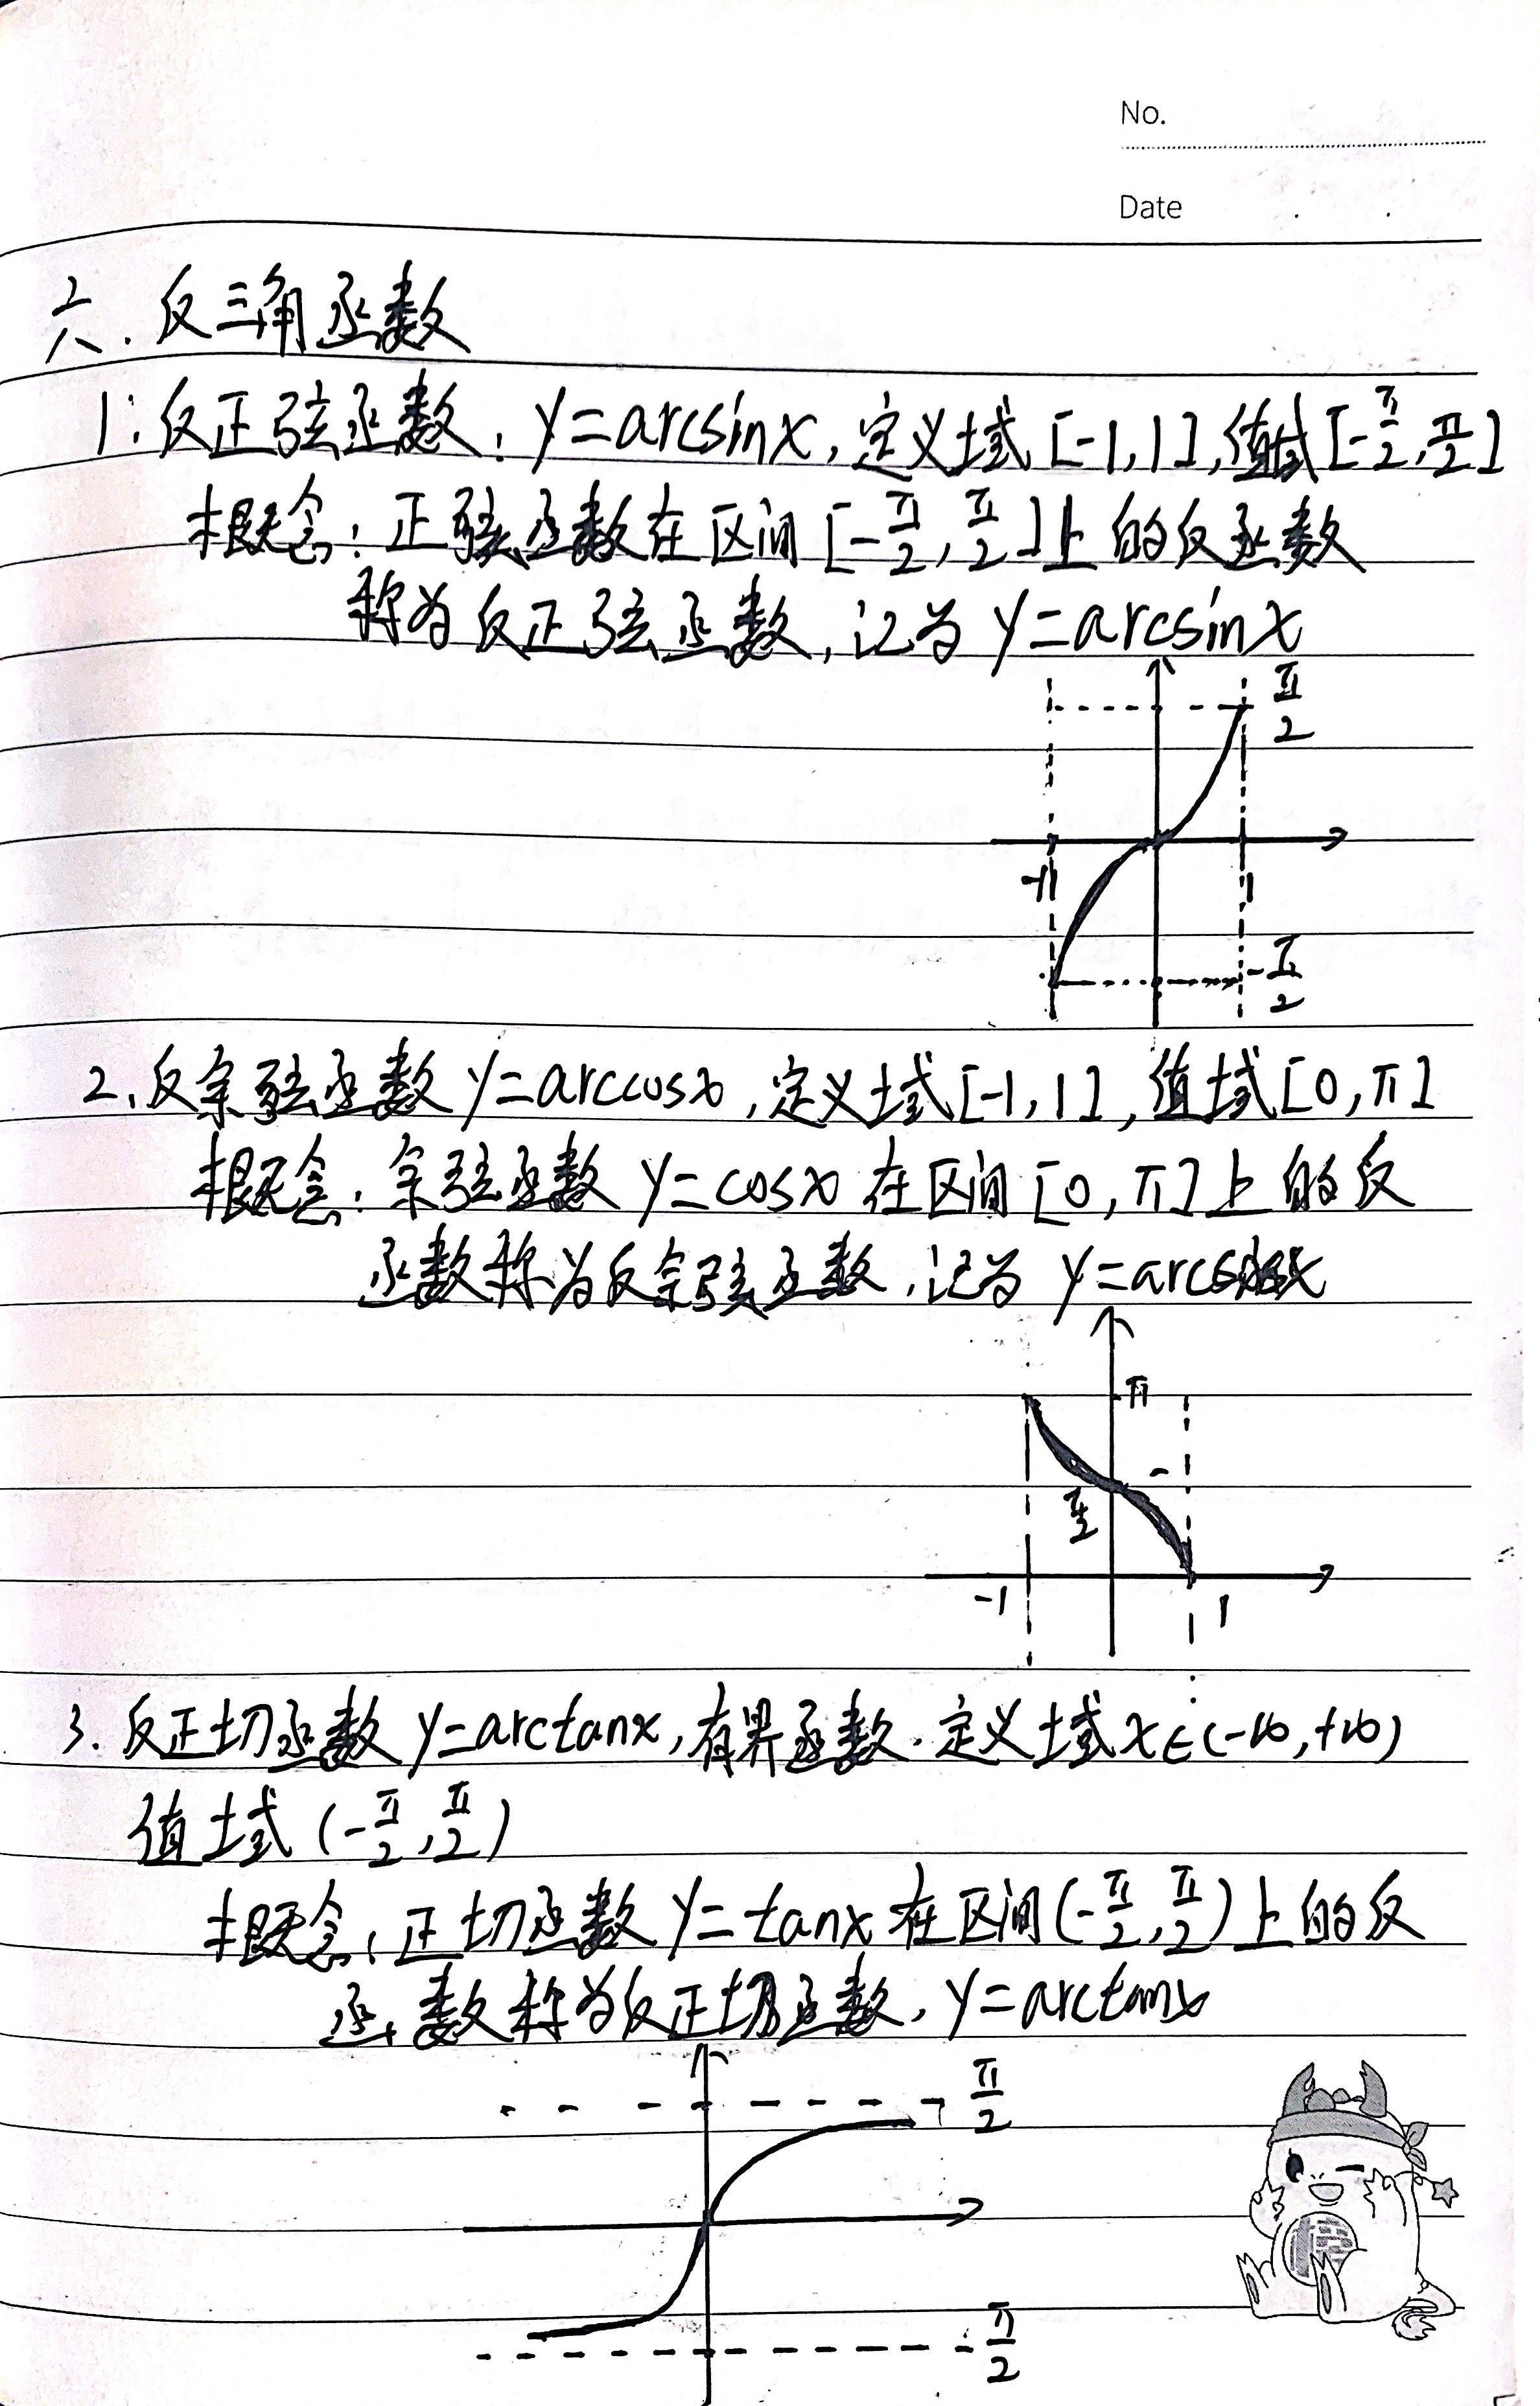 No.
Date
六.反三角函数
1.反正弦函数:y=arcsinx,定义域[-1,1],值域[-π/2,π/2]
概念:正弦函数在区间[-π/2,π/2]上的反函数
称为反正弦函数,记为y=arcsinx
π/2
-1 1
-π/2
2.反余弦函数y=arccosx,定义域[-1,1],值域[0,π]
概念:余弦函数y=cosx在区间[0,π]上的反
函数称为反余弦函数,记为
π
π/2
-1 1
3.反正切函数y=arctanx,有界函数.定义域x∈(-∞,+∞)
值域(-π/2,π/2)
概念:正切函数y=tanx在区间(-π/2,π/2)上的反
函数称为反正切函数,y=arctanx
π/2
-π/2